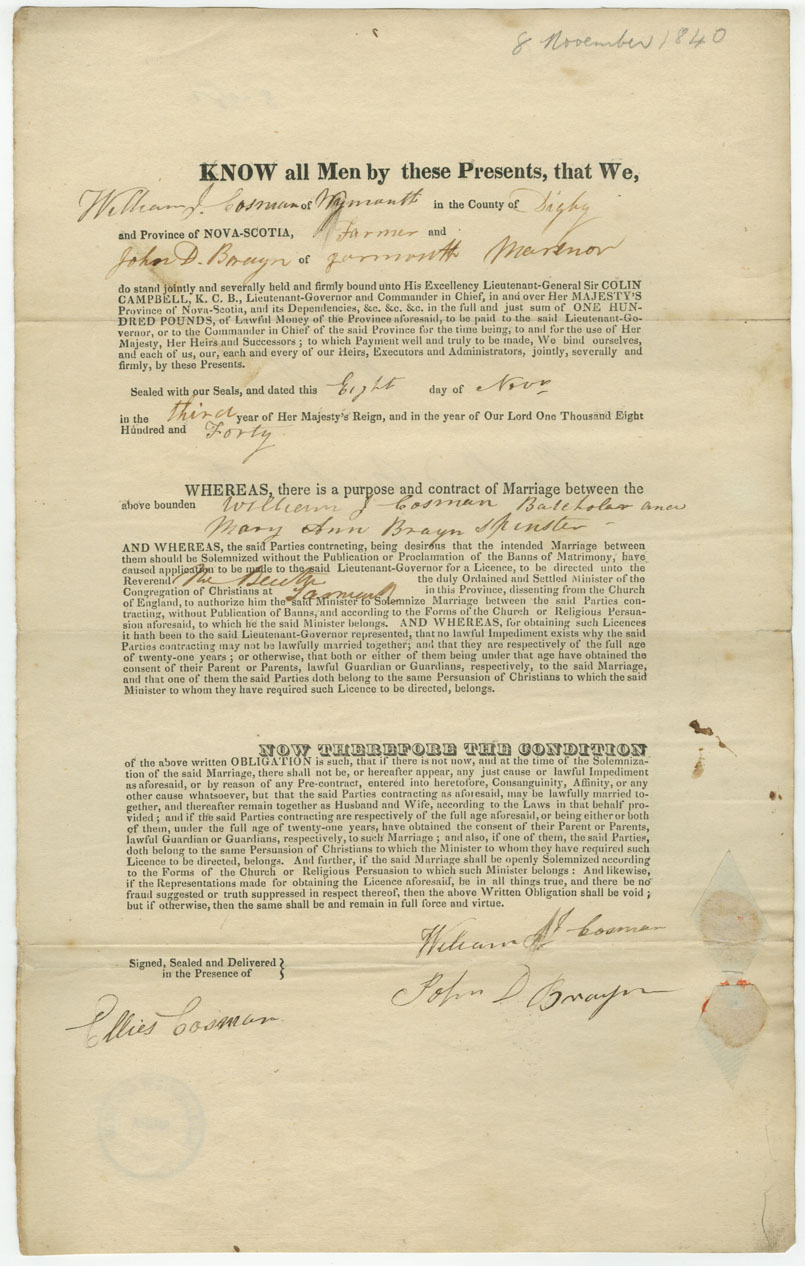 8 November 1840
KNOW all Men by these Presents, that We,
William J. Cosman of Wymouth in the County of Digby
and Province of NOVA-SCOTIA, Farmer and
John D. Brayn of yarmouth Marenor
do stand jointly and severally held and firmly bound unto His Excellency Lieutenant-General Sir COLIN
CAMPBELL, K. C. B., Lieutenant-Governor and Commander in Chief, in and over Her MAJESTY'S
Province of Nova-Scotia, and its Dependencies, &c. &c. &c. in the full and just sum of ONE HUN-
DRED POUNDS, of Lawful Money of the Province aforesaid, to be paid to the said Lieutenant-Go-
vernor, or to the Commander in Chief of the said Province for the time being, to and for the use of Her
Majesty, Her Heirs and Successors ; to which Payment well and truly to be made, We bind ourselves,
and each of us, our, each and every of our Heirs, Executors and Administrators, jointly, severally and
firmly, by these Presents.
Sealed with our Seals, and dated this Eight day of Novr
in the third year of Her Majesty's Reign, and in the year of Our Lord One Thousand Eight
Hundred and Forty
WHEREAS, there is a purpose and contract of Marriage between the
above bounden William J Cosman Batcholar and
Mary Ann Brayn Spinster
AND WHEREAS, the said Parties contracting, being desirous that the intended Marriage between
them should be Solemnized without the Publication or Proclamation of the Banns of Matrimony, have
caused application to be made to the said Lieutenant-Governor for a Licence, to be directed unto the
Reverend the duly Ordained and Settled Minister of the
Congregation of Christians at in this Province, dissenting from the Church
of England, to authorize him the said Minister to Solemnize Marriage between the said Parties con-
tracting, without Publication of Banns, and according to the Forms of the Church or Religious Persua-
sion aforesaid, to which he the said Minister belongs. AND WHEREAS, for obtaining such Licences
it hath been to the said Lieutenant-Governor represented, that no lawful Impediment exists why the said
Parties contracting may not be lawfully married together; and that they are respectively of the full age
of twenty-one years ; or otherwise, that both or either of them being under that age have obtained the
consent of their Parent or Parents, lawful Guardian or Guardians, respectively, to the said Marriage,
and that one of them the said Parties doth belong to the same Persuasion of Christians to which the said
Minister to whom they have required such Licence to be directed, belongs.
NOW THEREFORE THE CONDITION
of the above written OBLIGATION is such, that if there is not now, and at the time of the Solemniza-
tion of the said Marriage, there shall not be, or hereafter appear, any just cause or lawful Impediment
as aforesaid, or by reason of any Pre-contract, entered into heretofore, Consanguinity, Affinity, or any
other cause whatsoever, but that the said Parties contracting as aforesaid, may be lawfully married to-
gether, and thereafter remain together as Husband and Wife, according to the Laws in that behalf pro-
vided ; and if the said Parties contracting are respectively of the full age aforesaid, or being either or both
of them, under the full age of twenty-one years, have obtained the consent of their Parent or Parents,
lawful Guardian or Guardians, respectively, to such Marriage ; and also, if one of them, the said Parties,
doth belong to the same Persuasion of Christians to which the Minister to whom they have required such
Licence to be directed, belongs. And further, if the said Marriage shall be openly Solemnized according
to the Forms of the Church or Religious Persuasion to which such Minister belongs : And likewise,
if the Representations made for obtaining the Licence aforesaid, be in all things true, and there be no
fraud suggested or truth suppressed in respect thereof, then the above Written Obligation shall be void ;
but if otherwise, then the same shall be and remain in full force and virtue.
William J Cosman
Signed, Sealed and Delivered
in the Presence of
John D Brayn
Ellies Cosman